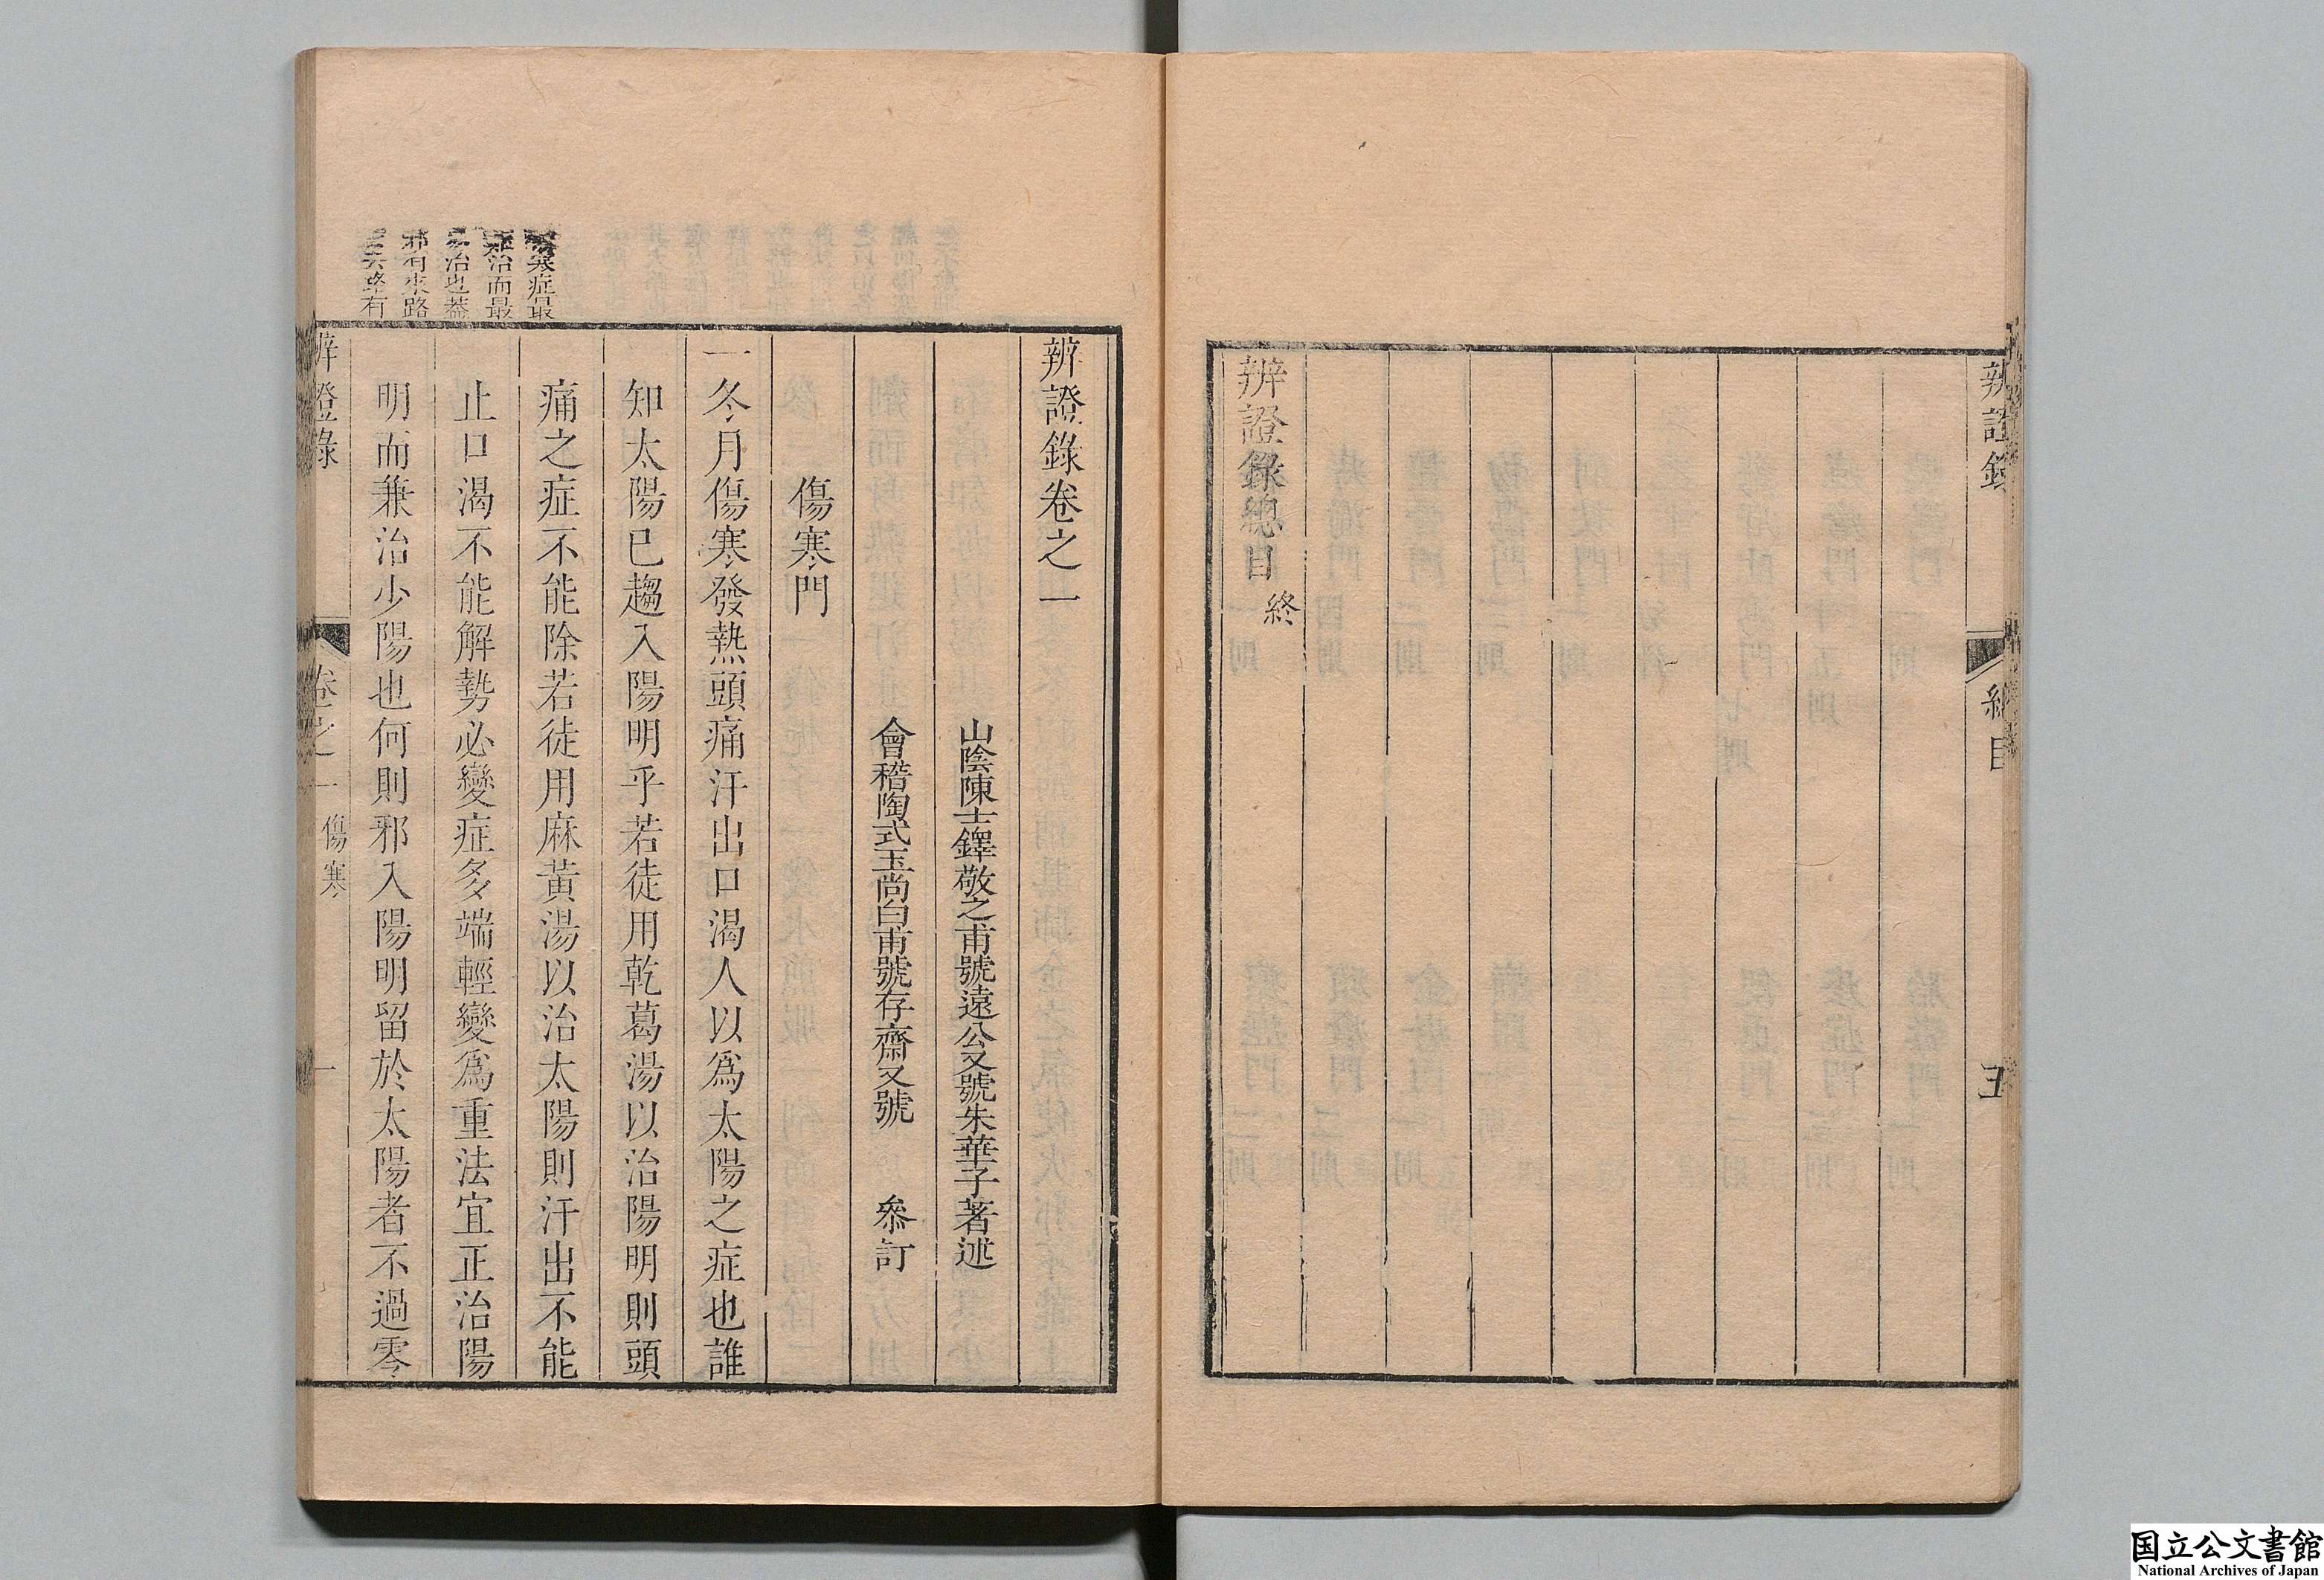 辨證錄
總目
五
辨證錄總目 終
辨證錄卷之一
山陰陳士鐸敬之甫號遠公又號朱華子著述
會稽陶式玉尚白甫號存齋又號 叅訂
傷寒門
一冬月傷寒發熱頭痛汗出口渴人以爲太陽之症也誰
知太陽已趨入陽明乎若徒用乾葛湯以治陽明則頭
痛之症不能除若徒用麻黃湯以治太陽則汗出不能
止口渴不能解勢必變症多端輕變爲重法宜正治陽
明而兼治少陽也何則邪入陽明留於太陽者不過零
寒症最
治而最
治也葢
邪有來路
去路有
辨證錄
卷之一 傷寒
一
国立公文書館
National Archives of Japan